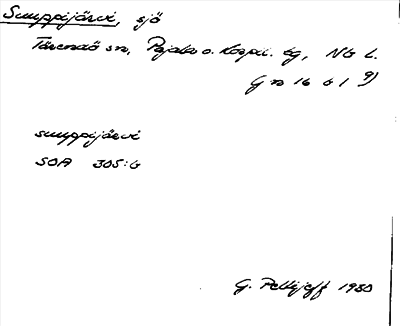 Suuppijärvi, sjö
Tärendö sn, Pajala o. Korpil. tg, Nb l.
suuppijärvi
SOA 305:6
G. Pellijeff 1980